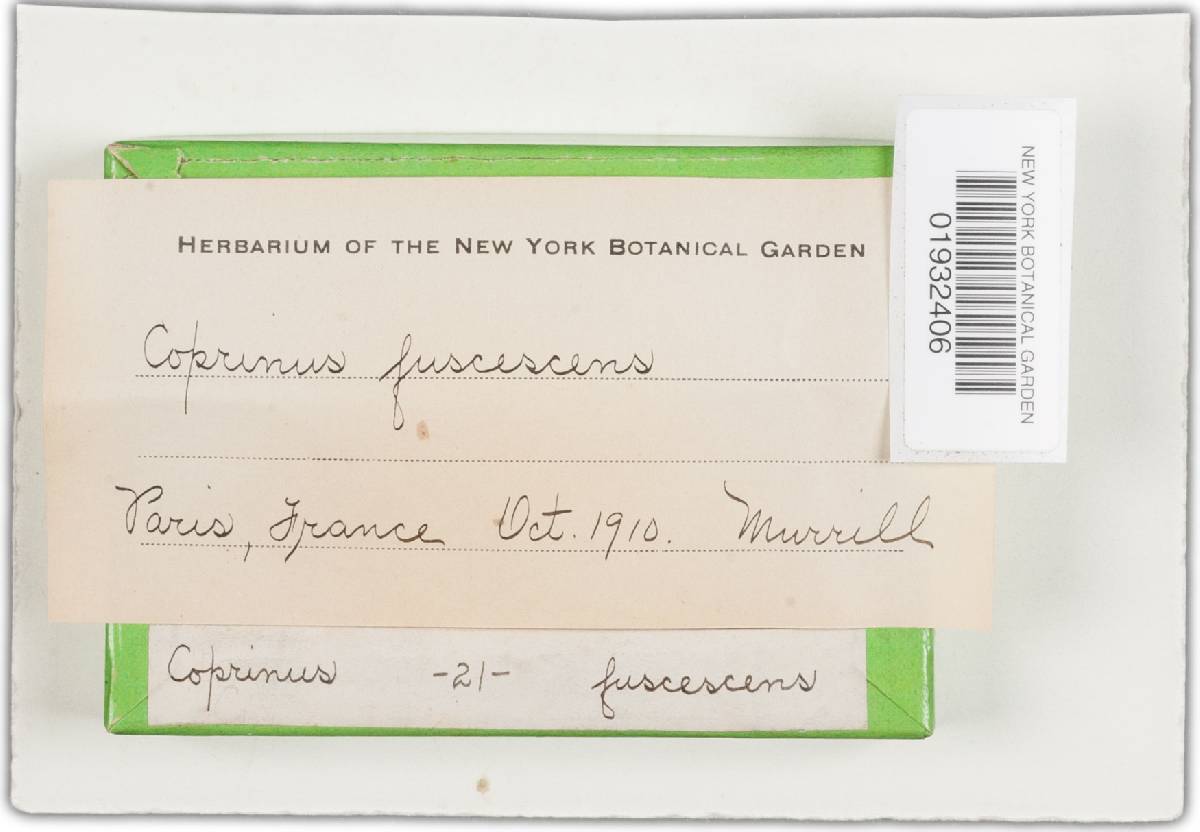 HERBARIUM OF THE NEW YORK BOTANICAL GARDEN
Coprinus fuscescens
Paris, France Oct. 1910. Murrill
Coprinus -21- fuscescens
NEW YORK BOTANICAL GARDEN
01932406